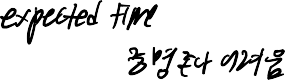 expected time
증명존나 어려움